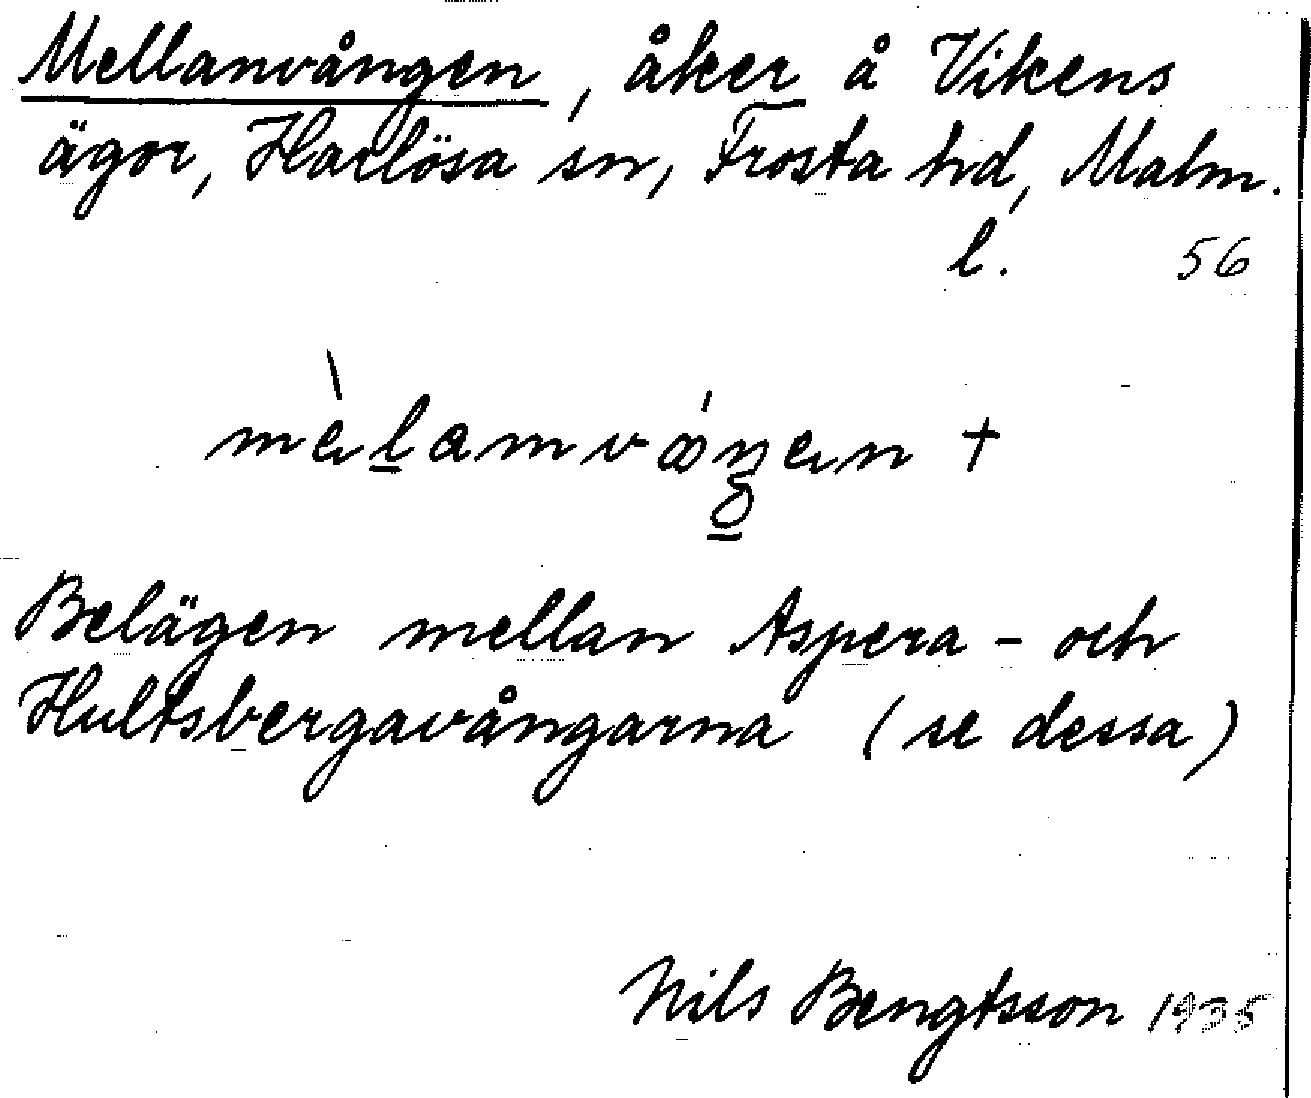 Mellanvången, åker å Vikens
ägor, Harlösa sn, Frosta hd, Malm.
l. 56
Belägen mellan Aspera- och
Hultsbergavångarna (se dessa)
Nils Bengtsson 1935